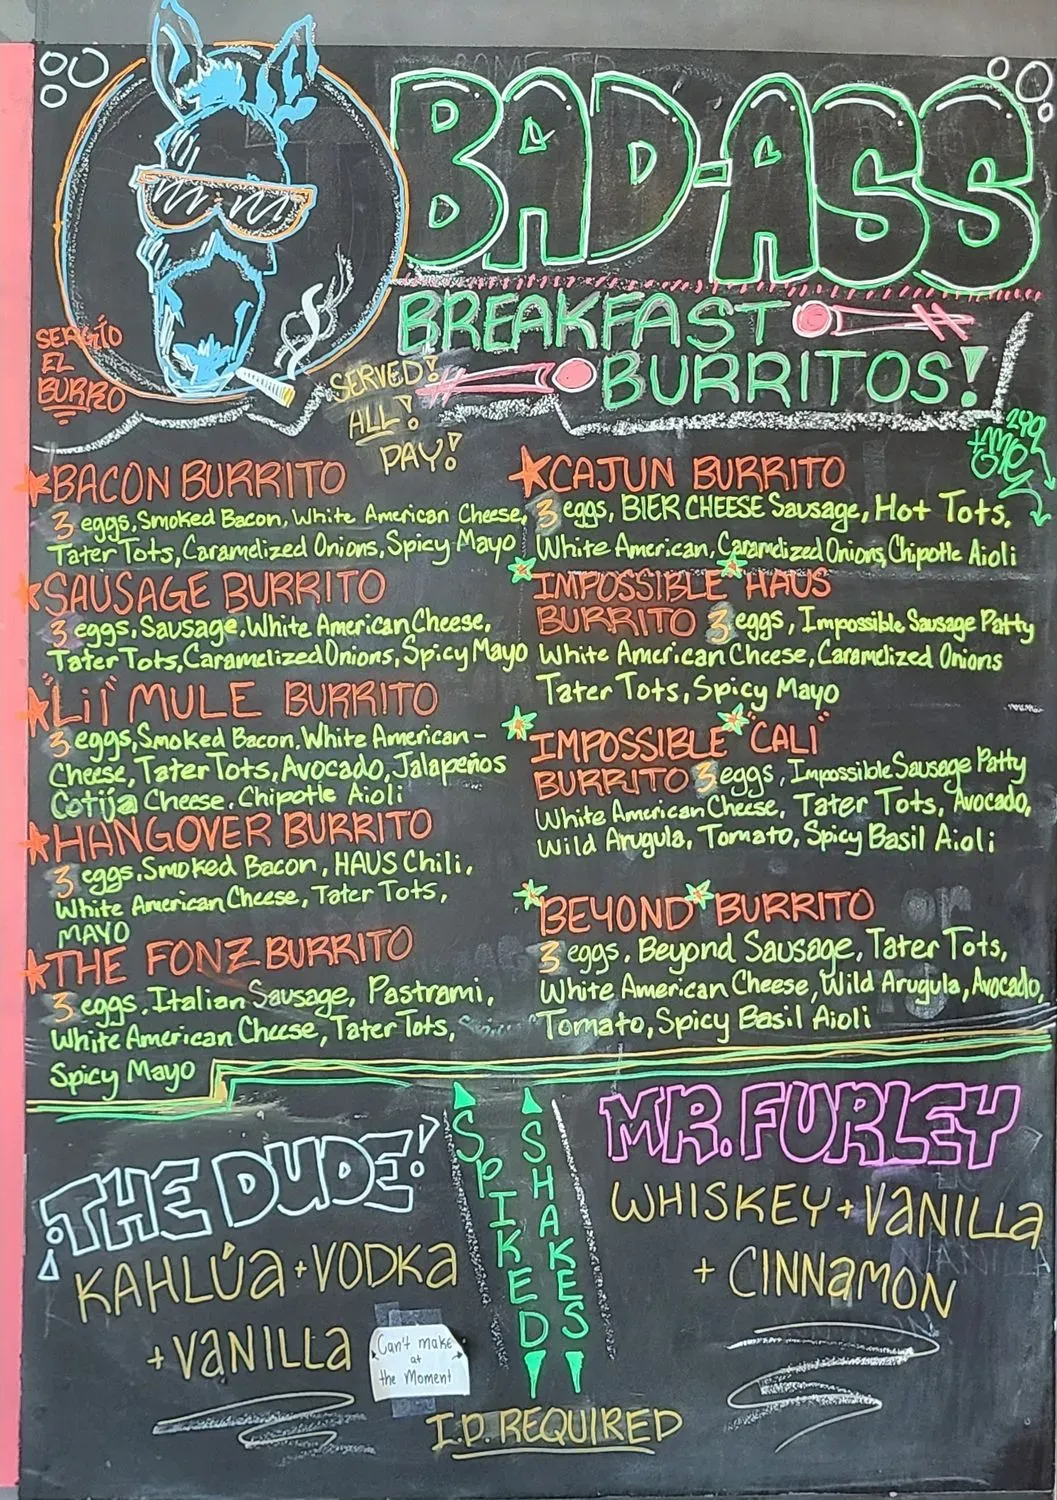 BAD-ASS
BREAKFAST
BURRITOS!
SERGÍO
EL
BURRO
SERVED!
ALL!
DAY!
BACON BURRITO
3 eggs, Smoked Bacon, White American Cheese,
Tater Tots, Caramelized Onions, Spicy Mayo
SAUSAGE BURRITO
3 eggs, Sausage, White American Cheese,
Tater Tots, Caramelized Onions, Spicy Mayo
"Lil" MULE BURRITO
3 eggs, Smoked Bacon, White American-
Cheese, Tater Tots, Avocado, Jalapeños
Cotija Cheese, Chipotle Aioli
HANGOVER BURRITO
3 eggs, Smoked Bacon, HAUS Chili,
White American Cheese, Tater Tots,
MAYO
THE FONZ BURRITO
3 eggs, Italian Sausage, Pastrami,
White American Cheese, Tater Tots,
Spicy Mayo
CAJUN BURRITO
3 eggs, BIER CHEESE Sausage, Hot Tots,
White American, Caramelized Onions, Chipotle Aioli
IMPOSSIBLE HAUS
BURRITO 3 eggs, Impossible Sausage Patty
White American Cheese, Caramelized Onions
Tater Tots, Spicy Mayo
IMPOSSIBLE "CALI"
BURRITO 3 eggs, Impossible Sausage Patty
White American Cheese, Tater Tots, Avocado,
Wild Arugula, Tomato, Spicy Basil Aioli
BEYOND BURRITO
3 eggs, Beyond Sausage, Tater Tots,
White American Cheese, Wild Arugula, Avocado,
Tomato, Spicy Basil Aioli
THE DUDE!
KAHLÚa + VODKa
+ VaNILLa
Can't make
at
the Moment
SPIKED
SHAKES
MR. FURLEY
WHISKEY + VaNILLa
+ CINNaMON
I.D. REQUIRED